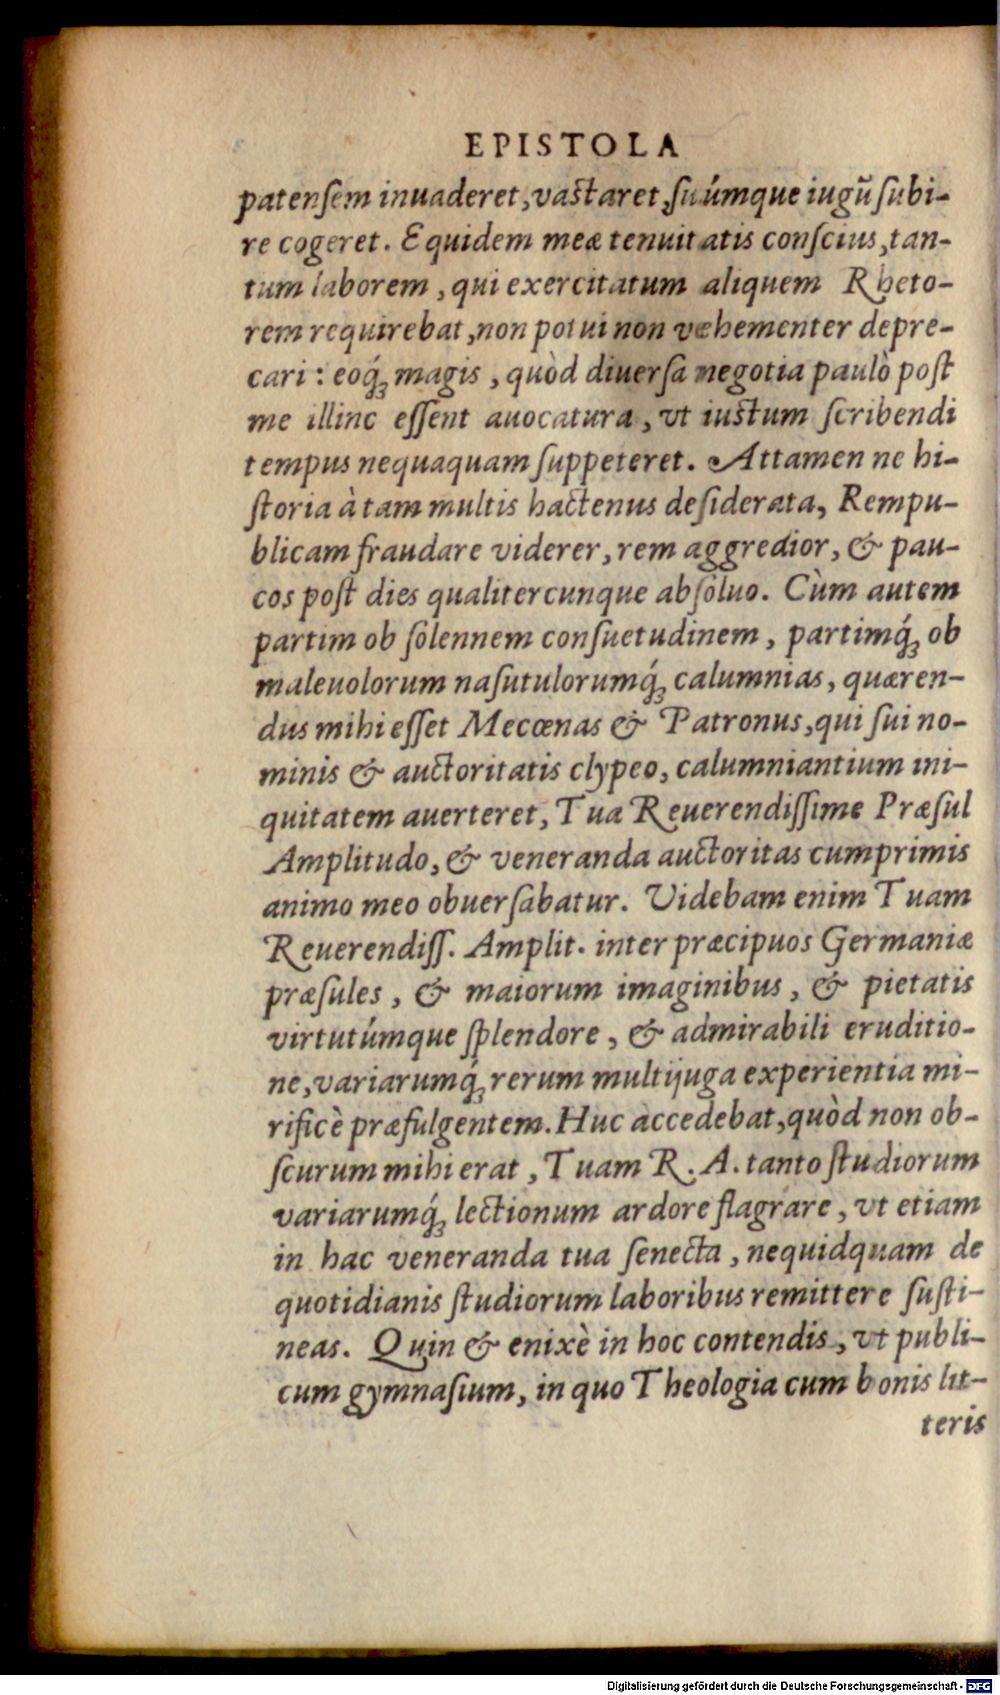 EPISTOLA
patenſem inuaderet, vaſtaret, ſuúmque iugũ ſubi-
re cogeret. Equidem meæ tenuitatis conſcius, tan-
tum laborem, qui exercitatum aliquem Rheto-
rem requirebat, non potui non vehementer depre-
cari: eoq́ꝫ magis, quòd diuerſa negotia paulò poſt
me illinc eſſent auocatura, vt iuſtum ſcribendi
tempus nequaquam ſuppeteret. Attamen ne hi-
ſtoria à tam multis hactenus deſiderata, Rempu-
blicam fraudare viderer, rem aggredior, & pau-
cos poſt dies qualitercunque abſoluo. Cùm autem
partim ob ſolennem conſuetudinem, partimq́ꝫ ob
maleuolorum naſutulorumq́ꝫ calumnias, quæren-
dus mihi eſſet Mecœnas & Patronus, qui ſui no-
minis & auctoritatis clypeo, calumniantium ini-
quitatem auerteret, Tua Reuerendiſſime Præſul
Amplitudo, & veneranda auctoritas cumprimis
animo meo obuerſabatur. Videbam enim Tuam
Reuerendiſſ. Amplit. inter præcipuos Germaniæ
præſules, & maiorum imaginibus, & pietatis
virtutúmque ſplendore, & admirabili eruditio-
ne, variarumq́ꝫ rerum multijuga experientia mi-
rificè præfulgentem. Huc accedebat, quòd non ob-
ſcurum mihi erat, Tuam R. A. tanto ſtudiorum
variarumq́ꝫ lectionum ardore flagrare, vt etiam
in hac veneranda tua ſenecta, nequidquam de
quotidianis ſtudiorum laboribus remittere ſuſti-
neas. Quin & enixè in hoc contendis, vt publi-
cum gymnaſium, in quo Theologia cum bonis lit-
teris
Digitalisierung gefördert durch die Deutsche Forschungsgemeinschaft - DFG